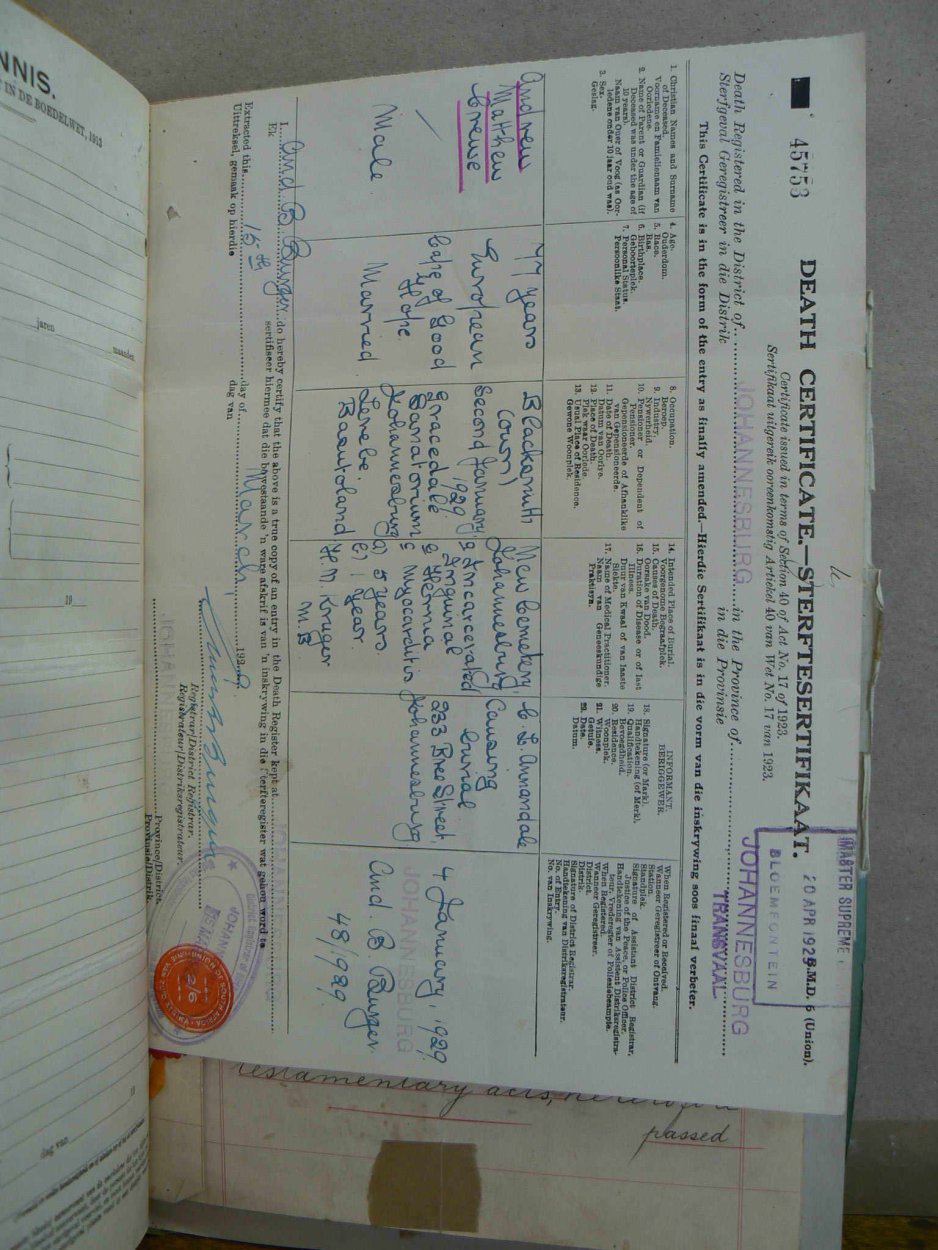 45753
DEATH CERTIFICATE.—STERFTESERTIFIKAAT.
B.M.D. 6 (Union).
Certificate issued in terms of Section 40 of Act No. 17 of 1923.
Sertifikaat uitgereik ooreenkomstig Artikel 40 van Wet No. 17 van 1923.
MASTER SUPREME
20 APR 1929
BLOEMFONTEIN
Death Registered in the District of JOHANNESBURG in the Province of TRANSVAAL
Sterfgeval Geregistreer in die Distrik in die Provinsie
JOHANNESBURG
This Certificate is in the form of the entry as finally amended.—Hierdie Sertifikaat is in die vorm van die inskrywing soos finaal verbeter.
1. Christian Names and Surname of Deceased.
Voorname en Familienaam van Oorledene.
2. Name of Parent or Guardian (if Deceased was under the age of 10 years).
Naam van Ouer of Voog (as Oorledene onder 10 jaar oud was).
3. Sex.
Geslag.
4. Age.
Ouderdom.
5. Race.
Ras.
6. Birthplace.
Geboorteplek.
7. Personal Status.
Persoonlike Staat.
8. Occupation.
Beroep.
9. Industry.
Nywerheid.
10. Pensioner or Dependent of Pensioner.
Gepensioneerde of Afhanklike van Gepensioneerde.
11. Date of Death.
Datum van Oorlye.
12. Place of Death.
Plek waar Oorlede.
13. Usual Place of Residence.
Gewone Woonplek.
14. Intended Place of Burial.
Voorgenome Begraafplek.
15. Causes of Death.
Oorsake van Dood.
16. Duration of Disease or of last Illness.
Duur van Kwaal of van laaste Siekte.
17. Name of Medical Practitioner.
Naam van Geneeskundige Praktisyn.
INFORMANT.
BERIGGEWER.
18. Signature (or Mark).
Handtekening (of Merk).
19. Qualification.
Bevoegdheid.
20. Residence.
Woonplek.
21. Witness.
Getuie.
22. Date.
Datum.
When Registered or Received.
Wanneer Geregistreer of Ontvang.
Station.
Standplek.
Signature of Assistant District Registrar, Justice of the Peace, or Police Officer.
Handtekening van Assistent Distriksregistrateur, Vrederegter of Polisiebeampte.
When Registered.
Wanneer Geregistreer.
District.
Distrik.
Signature of District Registrar.
Handtekening van Distriksregistrateur.
No. of Entry.
No. van Inskrywing.
Andrew
Matthew
Creuwe
Male
77 years
European
Cape of Good
Hope
Married
Blacksmith
(own)
Second January
1929
Gracedale
Sanatorium
Johannesburg
Leribe
Basutoland
New Cemetery,
Johannesburg
a Incarcerated
Inguinal
Hernia
c Myocarditis
a) 5 years
c) 1 year
H.M. Kruger
M.B
C. L. Annandale
Causing
burial
233 Bree Street,
Johannesburg
4 January 1929
JOHANNESBURG
And. B Burger
48/1929
I And B Burger do hereby certify that the above is a true copy of an entry in the Death Register kept at
Ek sertifiseer hiermee dat die bovestaande 'n ware afskrif is van 'n inskrywing in die Sterfteregister wat gehou word te
Extracted this 15th day of March 1929
Uittreksel, gemaak op hierdie dag van
Registrar/District Registrar.
Registrateur/Distriksregistrateur.
Province/District.
Provinsie/Distrik.
2/6
NNIS.
IN DE BOEDELWET, 1913
jaren
maanden
19
dag van
19
testamentary acts,
passed